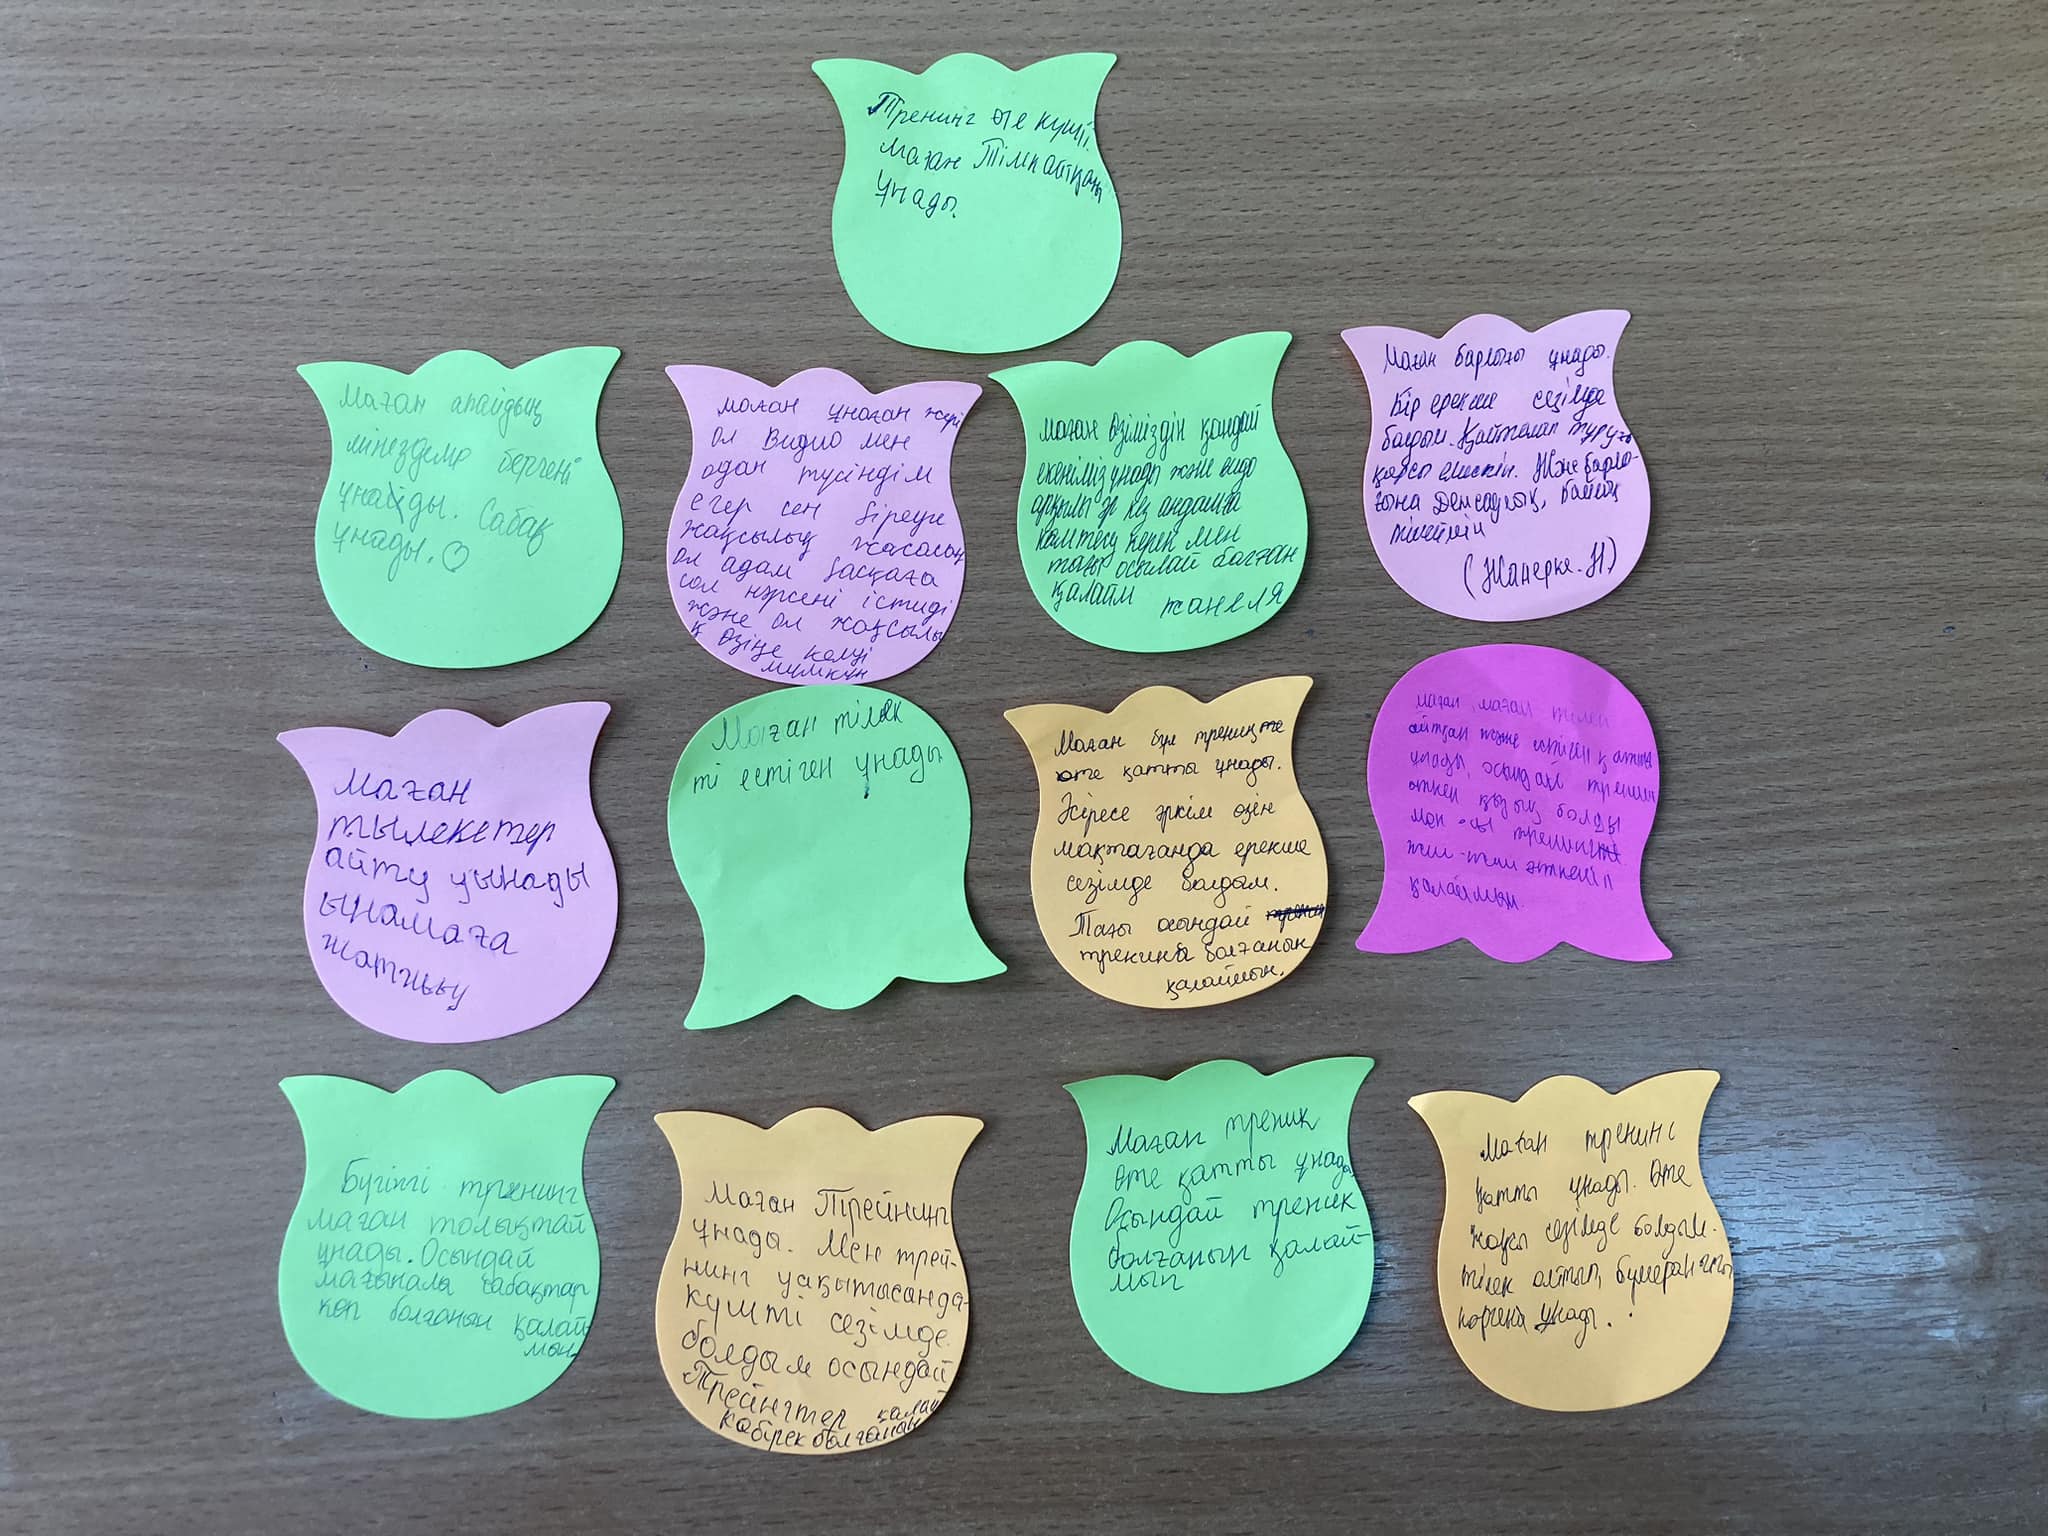 Тренинг өте күшті.
маған Тілек айтқаны
ұнады.
Маған апайдың
мінездеме бергені
ұнайды. Сабақ
ұнады.
маған ұнаған жері
ол видио мен
одан түсіндім
егер сен біреуге
жақсылық жасасаң
ол адам басқаға
сол нәрсені істиді
және ол жақсылы
қ өзіңе келуі
мумкүн
Маған өзіміздін қандай
екеніміз ұнады және видо
арқылы әр кез андашта
көмтесу керек мен
тағы осылай болған
қалайм жанеля
Маған барлығы ұнады.
Бір ерекше сезімде
болдым. Қайталап тұруға
қарсы емеспін. Және барлы-
ғына Денсаулық, байлық
тілеймін
(Жанерке.Н)
Маған
тылекетер
айту уынады
ынамаға
Маған тілек
ті естіген ұнады
Маған бұл тренингте
өте қатты ұнады.
Әсіресе әркім өзін
мақтағанда ерекше
сезімде болдым.
Тағы осындай
тренинг болғанын
қалаймын.
маған, маған тілек
айтқан және естіген қатты
ұнады, осындай тренинг
өткен қызық болды
мен осы тренингте
жиі-жиі өткенін
қалаймын.
Бүгінгі тренинг
маған толықтай
ұнады. Осындай
мағыналы сабақтар
көп болғанын қалай
мын
Маған Трейнинг
ұнады. Мен трей-
нинг уақытысанда-
күшті сезімде
болдым осындай
Трейнгтер қалай
көбірек болғанын
Маған треник
өте қатты ұнады
Осындай треник
болғанын қалай-
мын
Маған тренинг
қатты ұнады. Өте
жақсы сезімде болдым.
тілек айтып, бумеранг
көргені ұнады.